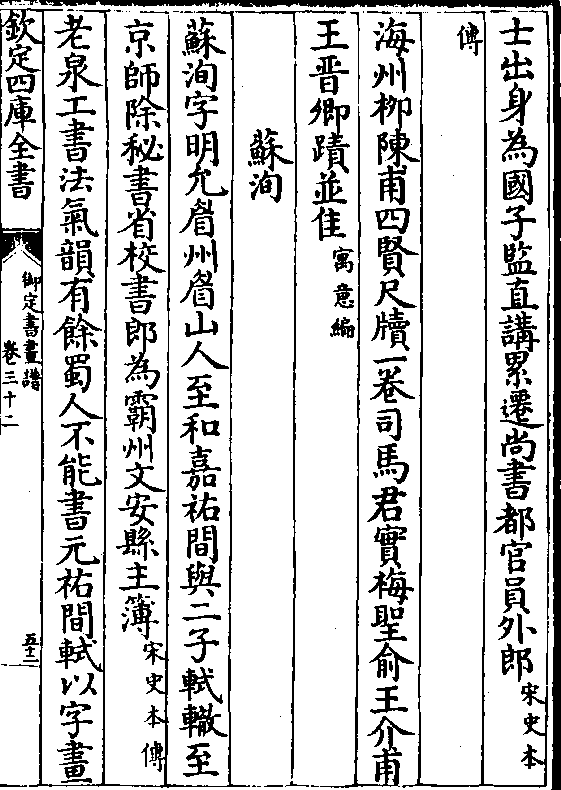 士出身為國子監直講累遷尚書都官員外郎宋史本
傳
海州柳陳甫四賢尺牘一卷司馬君實梅聖俞王介甫
王晋卿蹟並佳寓意編
蘇洵
蘇洵字明允眉州眉山人至和嘉祐間與二子軾轍至
京師除秘書省校書郎為霸州文安縣主簿宋史本傳
老泉工書法氣韻有餘蜀人不能書元祐間軾以字畫
欽定四庫全書
御定書畫譜
卷三十二
五十二